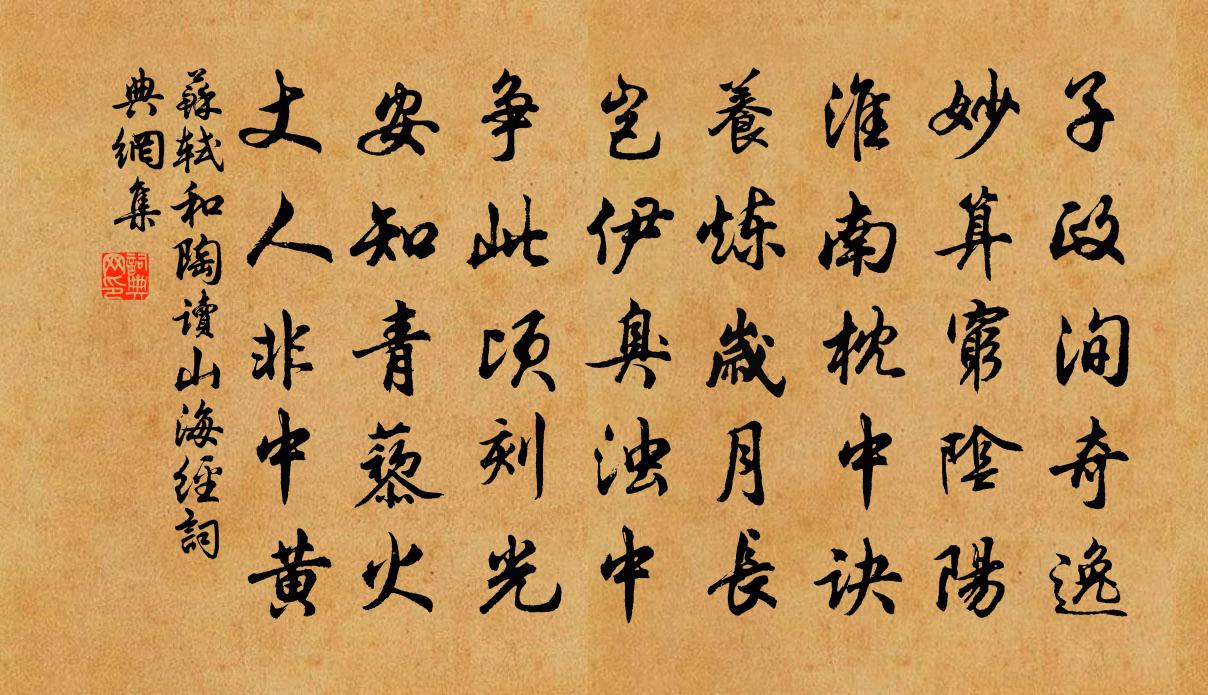 子政洵奇逸
妙算窮陰陽
淮南枕中訣
養炼歲月長
豈伊臭浊中
争此頃刻光
安知青藜火
丈人非中黄
蘇軾和陶讀山海經詞
典網集
詞典
网印